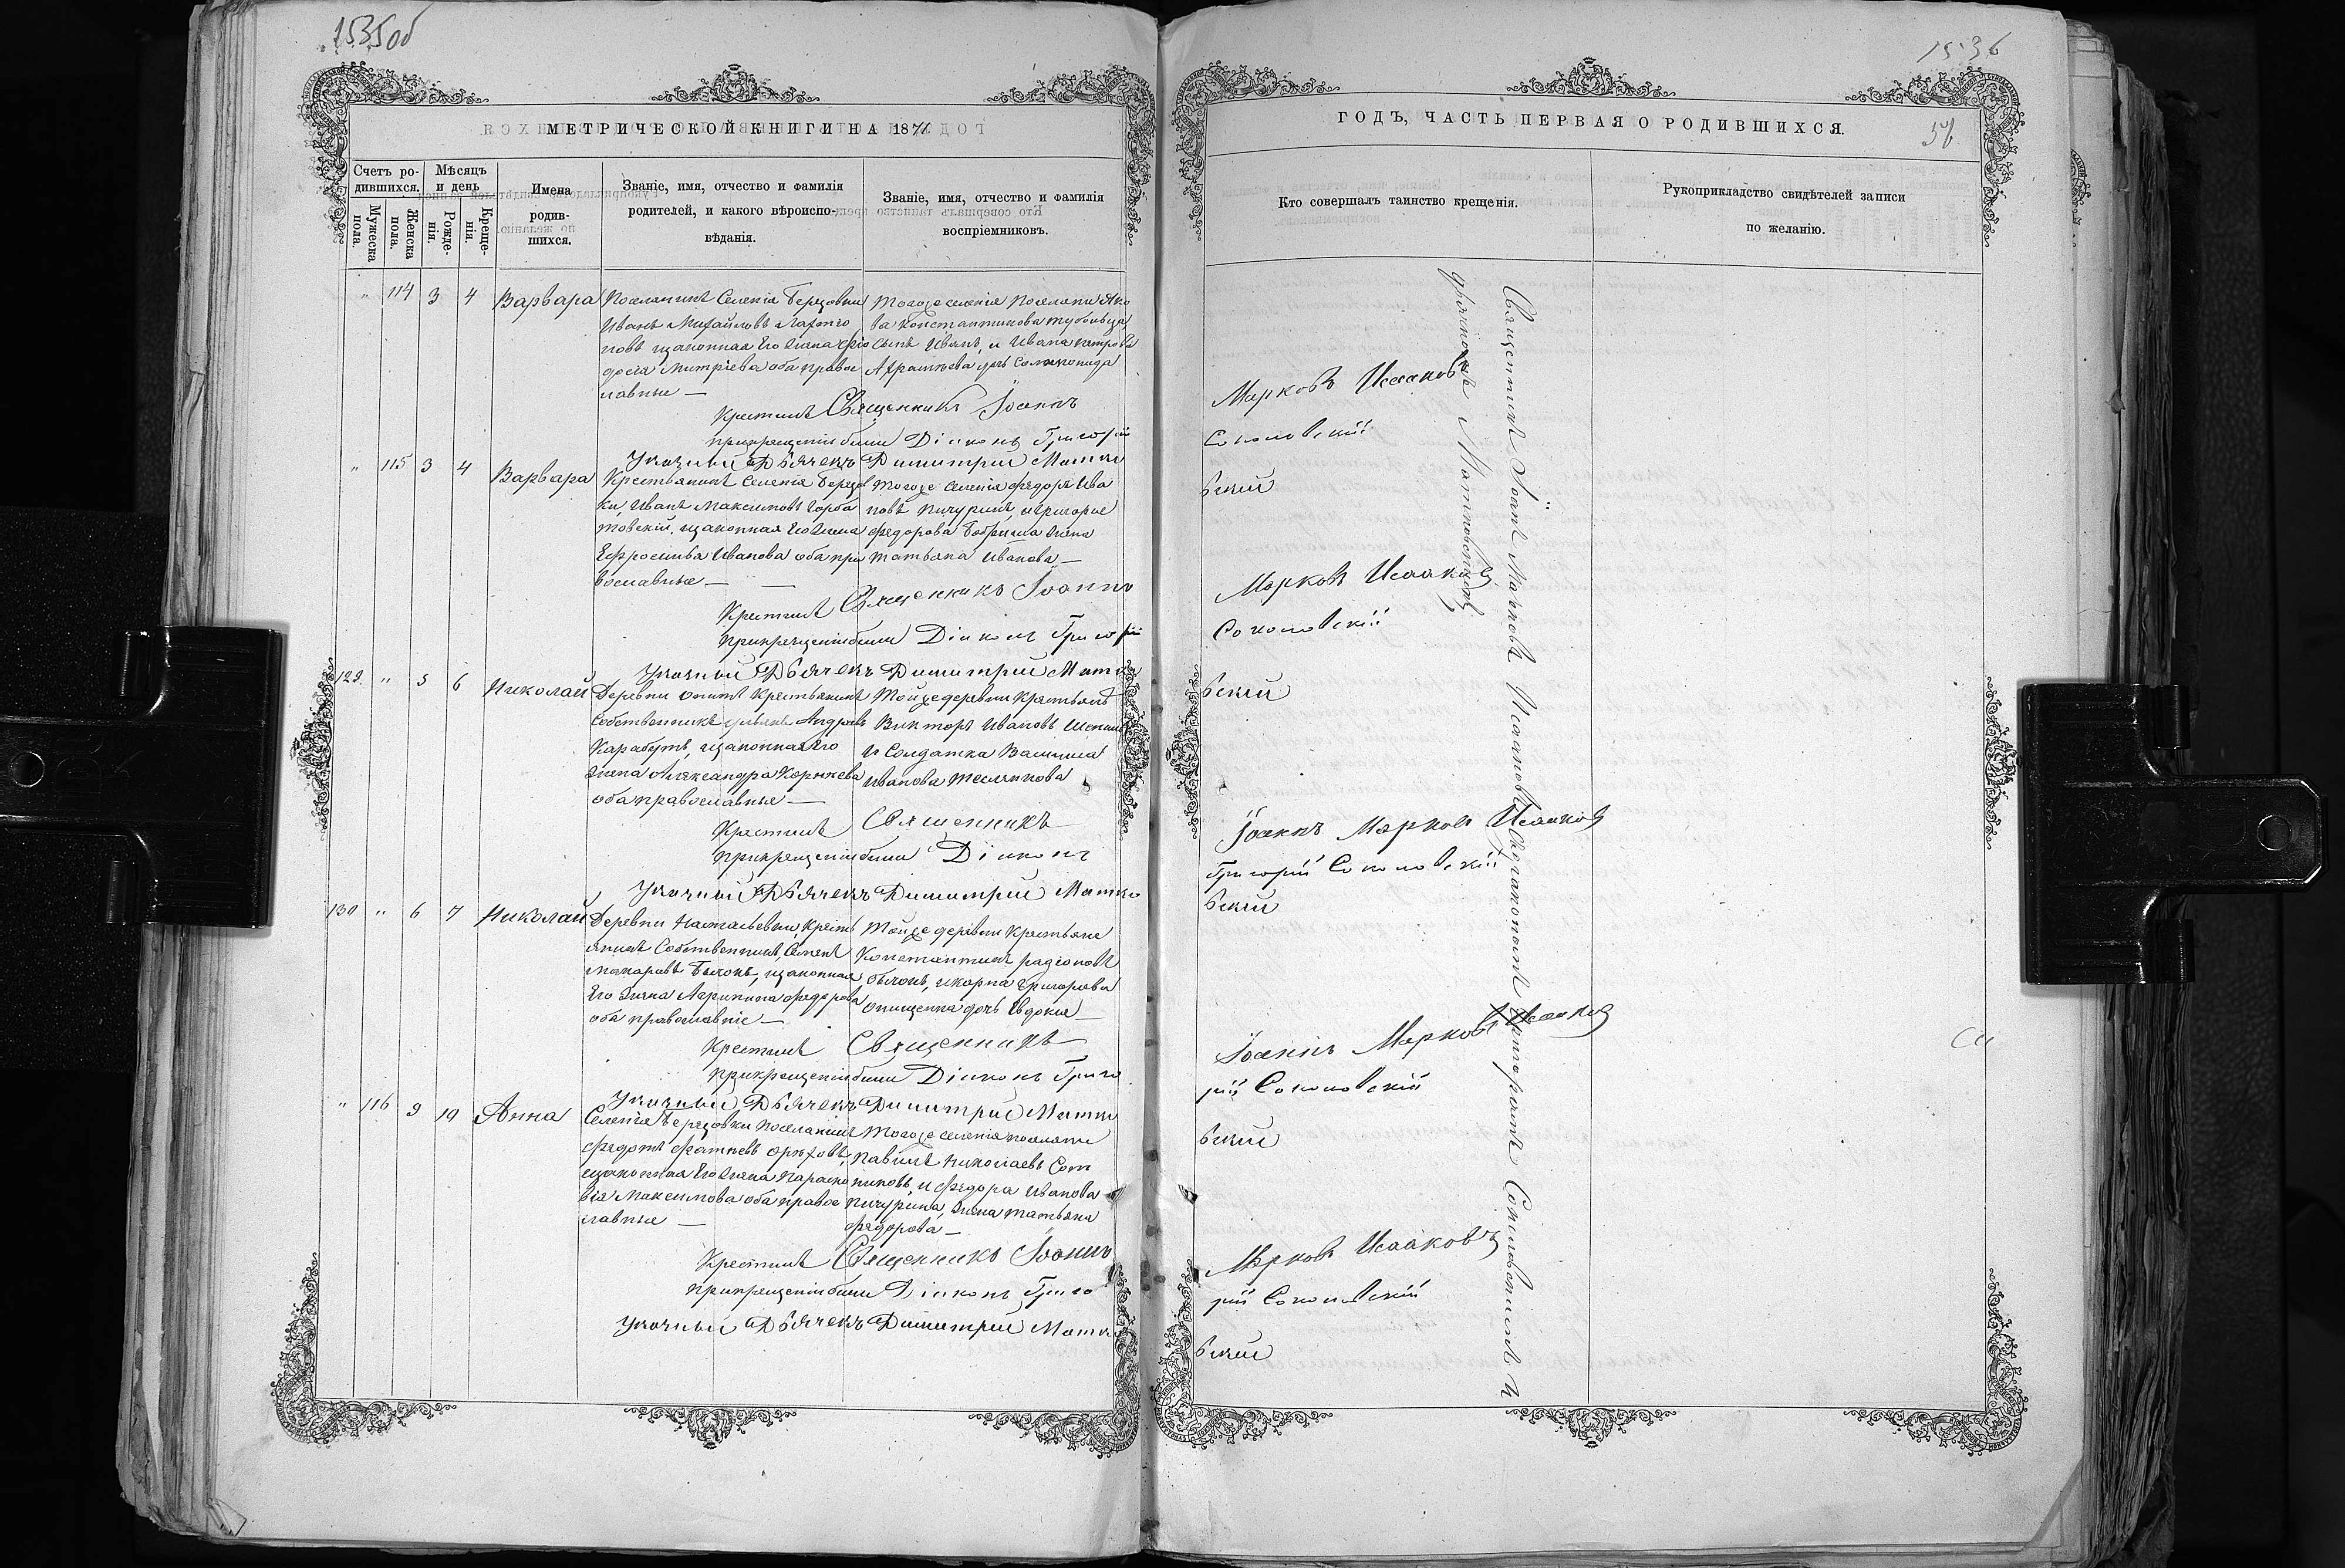 1535об
МЕТРИЧЕСКОЙ КНИГИ НА 1871
Счетъ ро-
дившихся.
Мужеска
пола.
Женска
пола.
Мѣсяцъ
и день
Рожде-
нія.
Креще-
нія.
Имена
родив-
шихся.
Званіе, имя, отчество и фамилія
родителей, и какого вѣроиспо-
вѣданія.
Званіе, имя, отчество и фамилія
воспріемниковъ.
" 114 3 4 Варвара
Поселянинъ Селенія Березовки
Иванъ Михайловъ
новъ изаконная Его жена Фео
досія Митріева оба право
славные —
Тогоже селенія поселяни Яко
ва Константинова
сынъ Иванъ, и Ивана петрова
дочь Соломонида
Крестилъ Священникъ Іоаннъ
прикрещеніи были Діяконъ Григорій
Указный Дьячекъ Димитрий Матко
" 115 3 4 Варвара
Крестьянинъ Селенія Березов
ки, Иванъ Максимовъ Горба
товскій, изаконная Его жена
Ефросинья Иванова оба пра
вославные —
Тогоже селенія Федоръ Ива
новъ Пичуринъ, игригорье
Федорова жена
Татьяна Иванова —
Крестилъ Священникъ Іоаннъ
прикрещеніи были Діяконъ Григорій
Указный Дьячекъ Димитрий Матко
129. " 5 6 Николай
Деревни Крестьянинъ
Собственникъ Андреевъ
Карабутъ, изаконная Его
жена Александра Корнѣева
оба православные —
Тойже деревни Крестьянъ
Викторъ Ивановъ
и Солдатка Васильева
Иванова
Крестилъ Священникъ
прикрещеніи были Діяконъ
Указный Дьячекъ Димитрий Матко
130 " 6 7 Николай
Деревни Настасьевки, Кресть
янинъ Собственникъ, Семенъ
Макаровъ Бычокъ, изаконная
Его жена Агрипина Федорова
оба православніе —
Тойже деревни Крестьяне
Константинъ радіоновъ
бычокъ, икорна Григорова
онищенка дочь Евдокія
Крестилъ Священникъ
прикрещеніи были Діяконъ Григо
Указный Дьячекъ Димитрий Матко
" 116 9 19 Анна
Селенія Березовки поселянинъ
Федотъ Фатѣевъ Орѣховъ,
изаконная Его жена Параско
вія Максимова оба право
славные —
Тогоже селенія поселяни
Павилъ Николаевъ Сот
никовъ, и Федора Иванова
Пичурина, жена татьяна
Федорова —
Крестилъ Священникъ Іоаннъ
прикрещеніи были Діяконъ Григо
Указный Дьячекъ Димитрий Матко
1536
56
ГОДЪ, ЧАСТЬ ПЕРВАЯ О РОДИВШИХСЯ.
Кто совершалъ таинство крещенія.
Рукоприкладство свидѣтелей записи
по желанію.
Марковъ Исааковъ
Соколовскій
вский
Марковъ Исааковъ
Соколовскій
вский
Іоаннъ Марковъ Исааковъ
Григорій Соколовскій
вский
Іоаннъ Марковъ Исааковъ
рій Соколовскій
вский
Марковъ Исааковъ
рій Соколовскій
вский
Священникъ Іоанъ Марковъ Исааковъ Здіакономъ григоріемъ Соколовскимъ и
дьячкомъ Матковскимъ